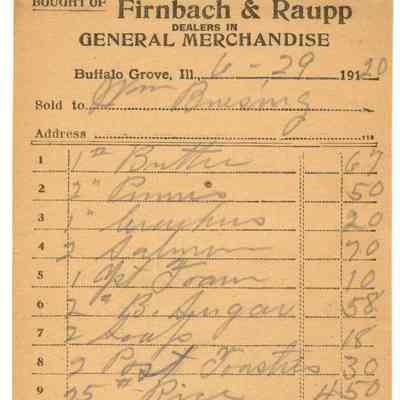 BOUGHT OF
Firnbach & Raupp
DEALERS IN
GENERAL MERCHANDISE
Buffalo Grove, Ill. 6-29 1920
Sold to Wm Buesing
Address
1 1# Butter 67
2 2" Prunes 50
3 1" 20
4 2 Salmon 70
5 1 pt Foam 10
6 2# B. Sugar 58
7 2 Soaps 18
8 2 Post Toasties 30
9 25# Rice 4 50